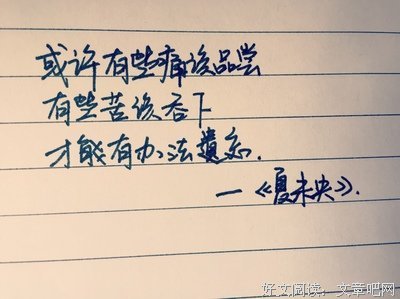 或许有些痛该品尝
有些苦该吞下
才能有办法遗忘.
—《夏未央》.
好文阅读：文章吧网